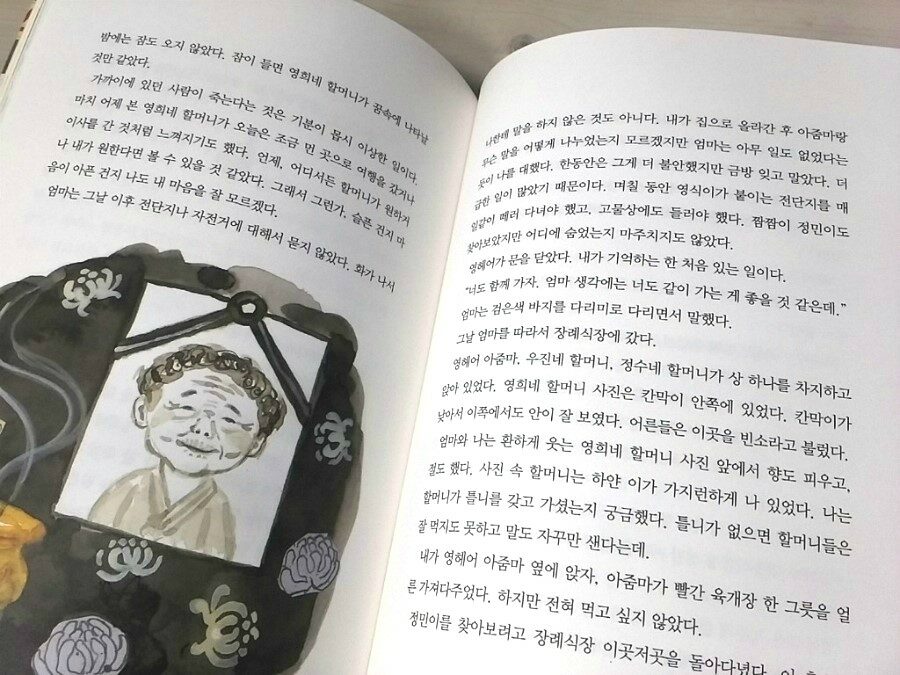 밤에는 잠도 오지 않았다. 잠이 들면 영희네 할머니가 꿈속에 나타날
것만 같았다.
가까이에 있던 사람이 죽는다는 것은 기분이 몹시 이상한 일이다.
마치 어제 본 영희네 할머니가 오늘은 조금 먼 곳으로 여행을 갔거나
이사를 간 것처럼 느껴지기도 했다. 언제, 어디서든 할머니가 원하거
나 내가 원한다면 볼 수 있을 것 같았다. 그래서 그런가, 슬픈 건지 마
음이 아픈 건지 나도 내 마음을 잘 모르겠다.
엄마는 그날 이후 전단지나 자전거에 대해서 묻지 않았다. 화가 나서
나한테 말을 하지 않은 것도 아니다. 내가 집으로 올라간 후 아줌마랑
무슨 말을 어떻게 나누었는지 모르겠지만 엄마는 아무 일도 없었다는
듯이 나를 대했다. 한동안은 그게 더 불안했지만 금방 잊고 말았다. 더
급한 일이 많았기 때문이다. 며칠 동안 영식이가 붙이는 전단지를 매
일같이 떼러 다녀야 했고, 고물상에도 들러야 했다. 짬짬이 정민이도
찾아보았지만 어디에 숨었는지 마주치지도 않았다.
영헤어가 문을 닫았다. 내가 기억하는 한 처음 있는 일이다.
“너도 함께 가자. 엄마 생각에는 너도 같이 가는 게 좋을 것 같은데.”
엄마는 검은색 바지를 다리미로 다리면서 말했다.
그날 엄마를 따라서 장례식장에 갔다.
영헤어 아줌마, 우진네 할머니, 정수네 할머니가 상 하나를 차지하고
앉아 있었다. 영희네 할머니 사진은 칸막이 안쪽에 있었다. 칸막이가
낮아서 이쪽에서도 안이 잘 보였다. 어른들은 이곳을 빈소라고 불렀다.
엄마와 나는 환하게 웃는 영희네 할머니 사진 앞에서 향도 피우고,
절도 했다. 사진 속 할머니는 하얀 이가 가지런하게 나 있었다. 나는
할머니가 틀니를 갖고 가셨는지 궁금했다. 틀니가 없으면 할머니들은
잘 먹지도 못하고 말도 자꾸만 샌다는데.
내가 영헤어 아줌마 옆에 앉자, 아줌마가 빨간 육개장 한 그릇을 얼
른 가져다주었다. 하지만 전혀 먹고 싶지 않았다.
정민이를 찾아보려고 장례식장 이곳저곳을 돌아다녔다.